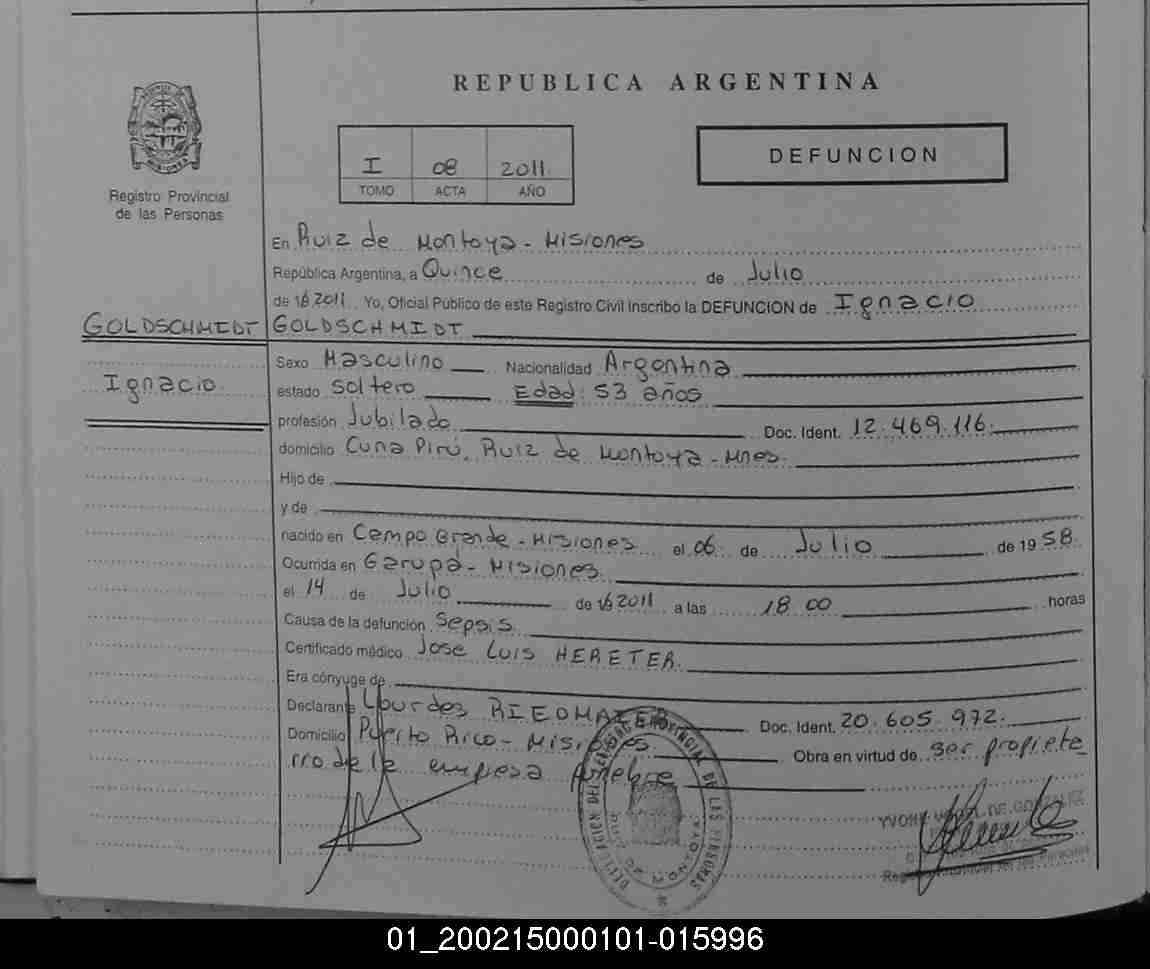 REPUBLICA ARGENTINA
I 08 2011
TOMO ACTA AÑO
DEFUNCION
Registro Provincial
de las Personas
En Ruiz de Montoya - Misiones
República Argentina, a Quince de Julio
de 19 2011 Yo, Oficial Público de este Registro Civil Inscribo la DEFUNCION de Ignacio
GOLDSCHMIDT GOLDSCHMIDT
Sexo Masculino Nacionalidad Argentina
Ignacio
estado Soltero Edad: 53 años
profesión Jubilado Doc. Ident. 12.469.116
domicilio Cuña Pirú, Ruiz de Montoya - Mnes.
Hijo de
y de
nacido en Campo Grande - Misiones el 06 de Julio de 19 58
Ocurrida en Garupá - Misiones
el 14 de Julio de 19 2011 a las 18 00 horas
Causa de la defunción Sepsis
Certificado médico Jose Luis HERETER.
Era cónyuge de
Declarante Lourdes RIEDMAIER Doc. Ident. 20.605.972.
Domicilio Puerto Rico - Misiones. Obra en virtud de ser propieta
rio de la empresa fúnebre
DELEGACION DEL REGISTRO PROVINCIAL DE LAS PERSONAS
RUIZ DE MONTOYA
DE GONZALEZ
01_200215000101-015996